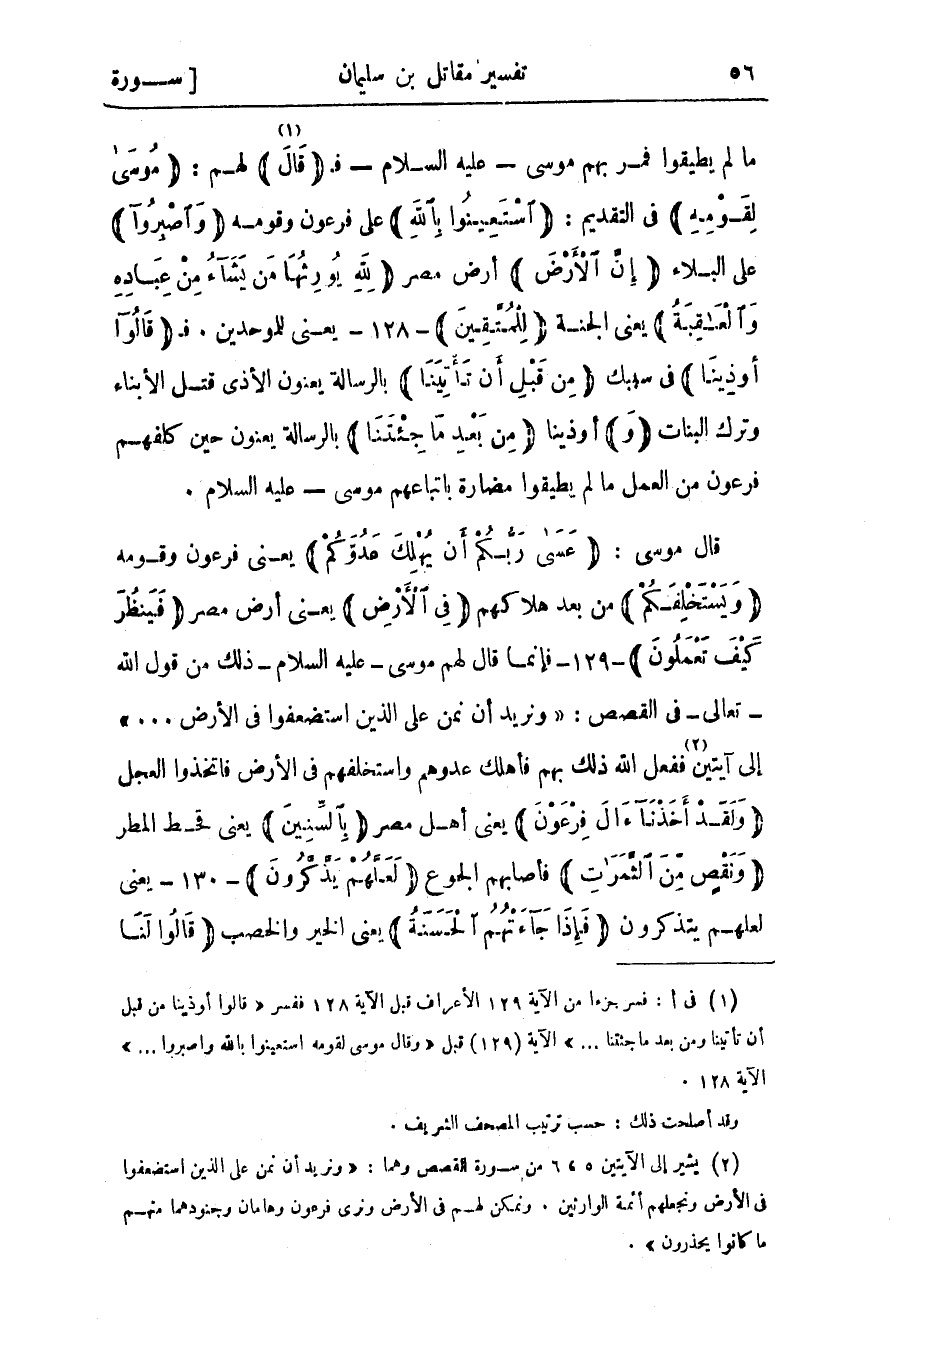 ٥٦ تفسير مقاتل بن سليمان [ ســـورة
ما لم يطيقوا فمــر بهم موسى — عليه الســلام — فـ (( قَالَ ))(١) لهــم : (( مُوسَىٰ
لِقَــوْمِهِ )) فى التقديم : (( ٱسْتَعِينُوا بِٱللَّهِ )) على فرعون وقومــه (( وَٱصْبِرُوٓا ))
على البــلاء (( إِنَّ ٱلْأَرْضَ )) أرض مصر (( لِلَّهِ يُورِثُهَا مَن يَشَآءُ مِنْ عِبَادِهِ
وَٱلْعَـٰقِبَةُ )) يعنى الجنــة (( لِلْمُتَّقِينَ )) – ١٢٨ – يعــنى للموحدين . فـ (( قَالُوٓا
أُوذِينَا )) فى سببك (( مِن قَبْلِ أَن تَأْتِيَنَا )) بالرسالة يعنون الأذى قتــل الأبناء
وترك البنات (( وَ )) أوذينا (( مِن بَعْدِ مَا جِئْتَنَا )) بالرسالة يعنون حين كلفهــم
فرعون من العمل ما لم يطيقوا مضارة باتباعهم موسى — عليه السلام .
قال موسى : (( عَسَىٰ رَبُّكُمْ أَن يُهْلِكَ عَدُوَّكُمْ )) يعــنى فرعون وقــومه
(( وَيَسْتَخْلِفَكُمْ )) من بعد هلاكهم (( فِى ٱلْأَرْضِ )) يعــنى أرض مصر (( فَيَنظُرَ
كَيْفَ تَعْمَلُونَ )) –١٢٩– فإنمــا قال لهم موسى – عليه السلام – ذلك من قول الله
– تعالى – فى القصص : « ونريد أن نمن على الذين استضعفوا فى الأرض ... »
إلى آيتين(٢) ففعل الله ذلك بهم فأهلك عدوهم واستخلفهم فى الأرض فاتخذوا العجل
(( وَلَقَــدْ أَخَذْنَآ ءَالَ فِرْعَوْنَ )) يعنى أهــل مصر (( بِٱلسِّنِينَ )) يعنى قحــط المطر
(( وَنَقْصٍ مِّنَ ٱلثَّمَرَٰتِ )) فأصابهم الجوع (( لَعَلَّهُمْ يَذَّكَّرُونَ )) – ١٣٠ – يعنى
لعلهــم يتذكرون (( فَإِذَا جَآءَتْهُمُ ٱلْحَسَنَةُ )) يعنى الخير والخصب (( قَالُوا لَنَــا
(١) فى أ : فسر جزءا من الآية ١٢٩ الأعراف قبل الآية ١٢٨ ففسر « قالوا أوذينا من قبل
أن تأتينا ومن بعد ما جئتنا ... » الآية (١٢٩) قبل « وقال موسى لقومه استعينوا بالله واصبروا ... »
الآية ١٢٨ .
وقد أصلحت ذلك : حسب ترتيب المصحف الشريف .
(٢) يشير إلى الآيتين ٥ ، ٦ من ســورة القصص وهما : « ونريد أن نمن على الذين استضعفوا
فى الأرض ونجعلهم أئمة الوارثين . ونمكن لهــم فى الأرض ونرى فرعون وهامان وجنودهما منهــم
ما كانوا يحذرون » .